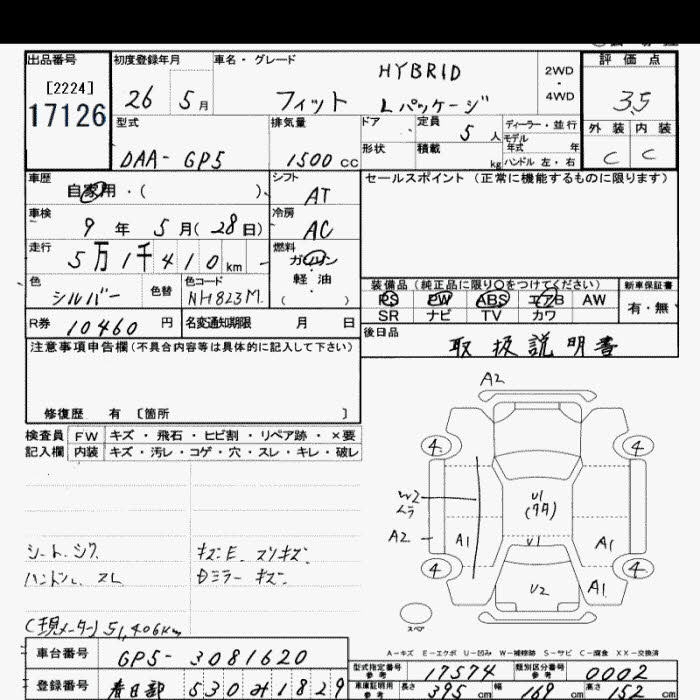 出品番号 初度登録年月 車名・グレード 評価点
[2224] 26 5月 フィット HYBRID Lパッケージ 2WD・4WD 3.5
17126
型式 排気量 ドア 定員 5人 ディーラー・並行 外装 内装
DAA-GP5 1500cc 形状 積載 kg モデル年式 年 ハンドル 左・右 C C
車歴 自家用・( ) シフト AT セールスポイント(正常に機能するものに限ります)
車検 9年 5月(28日) 冷房 AC
走行 5万1千410km 燃料 ガソリン
軽油
( )
色 シルバー 色替 色コード NH823M
装備品(純正品に限り○をつけてください) 新車保証書
PS PW ABS エアB AW 有・無
SR ナビ TV カワ
R券 10460円 名変通知期限 月 日
後日品 取扱説明書
注意事項申告欄(不具合内容等は具体的に記入して下さい)
修復歴 有 [箇所 ]
検査員 FW キズ・飛石・ヒビ割・リペア跡・×要
記入欄 内装 キズ・汚レ・コゲ・穴・スレ・キレ・破レ
A2
4 4
W2
ムラ
U1
A2 A1 U1 A1
4 A1 4
U2
スペア
シート、シワ キズE、スリキズ、
ハンドル、スレ
(現メーター) 51,406km
A-キズ E-エクボ U-凹み W-補修跡 S-サビ C-腐食 XX-交換済
車台番号 GP5-3081620
型式指定番号 参考 17574 類別区分番号 参考 0002
登録番号 春日部 530 み 1829
車庫証明用 参考 長さ 395cm 幅 169cm 高さ 152cm